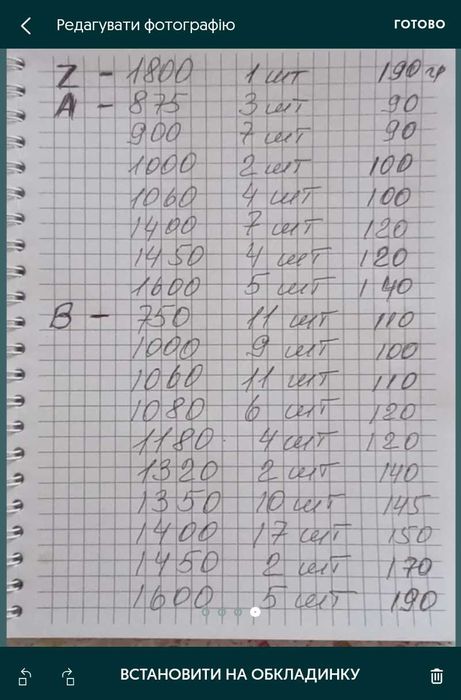 Редагувати фотографію ГОТОВО
Z - 1800 1 шт 190 гр
A - 875 3 шт 90
900 7 шт 90
1000 2 шт 100
1060 4 шт 100
1400 7 шт 120
1450 4 шт 120
1600 5 шт 140
B - 750 11 шт 110
1000 9 шт 100
1060 11 шт 110
1080 6 шт 120
1180 4 шт 120
1320 2 шт 140
1350 10 шт 145
1400 17 шт 150
1450 2 шт 170
1600 5 шт 190
ВСТАНОВИТИ НА ОБКЛАДИНКУ